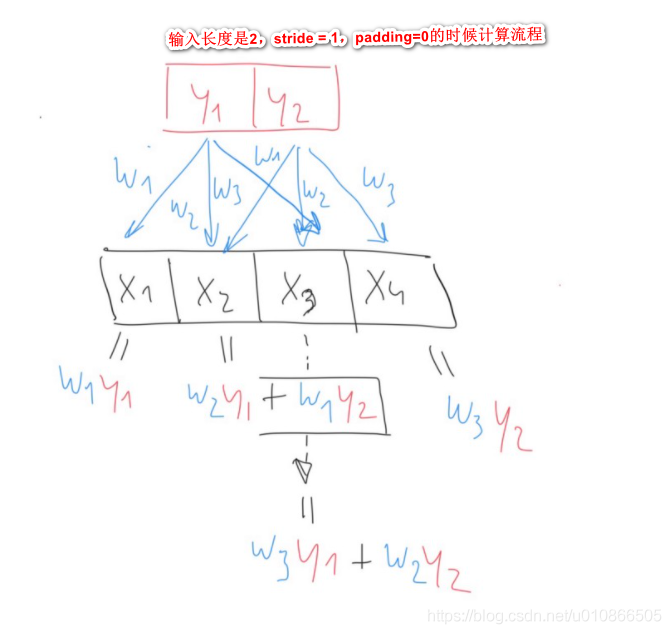 输入长度是2，stride = 1，padding=0的时候计算流程
y1 y2
W1 W2 W3 W1 W2 W3
X1 X2 X3 X4
=
=
=
W1y1 W2y1 + W1y2 W3y2
=
W3y1 + W2y2
https://blog.csdn.net/u010866505